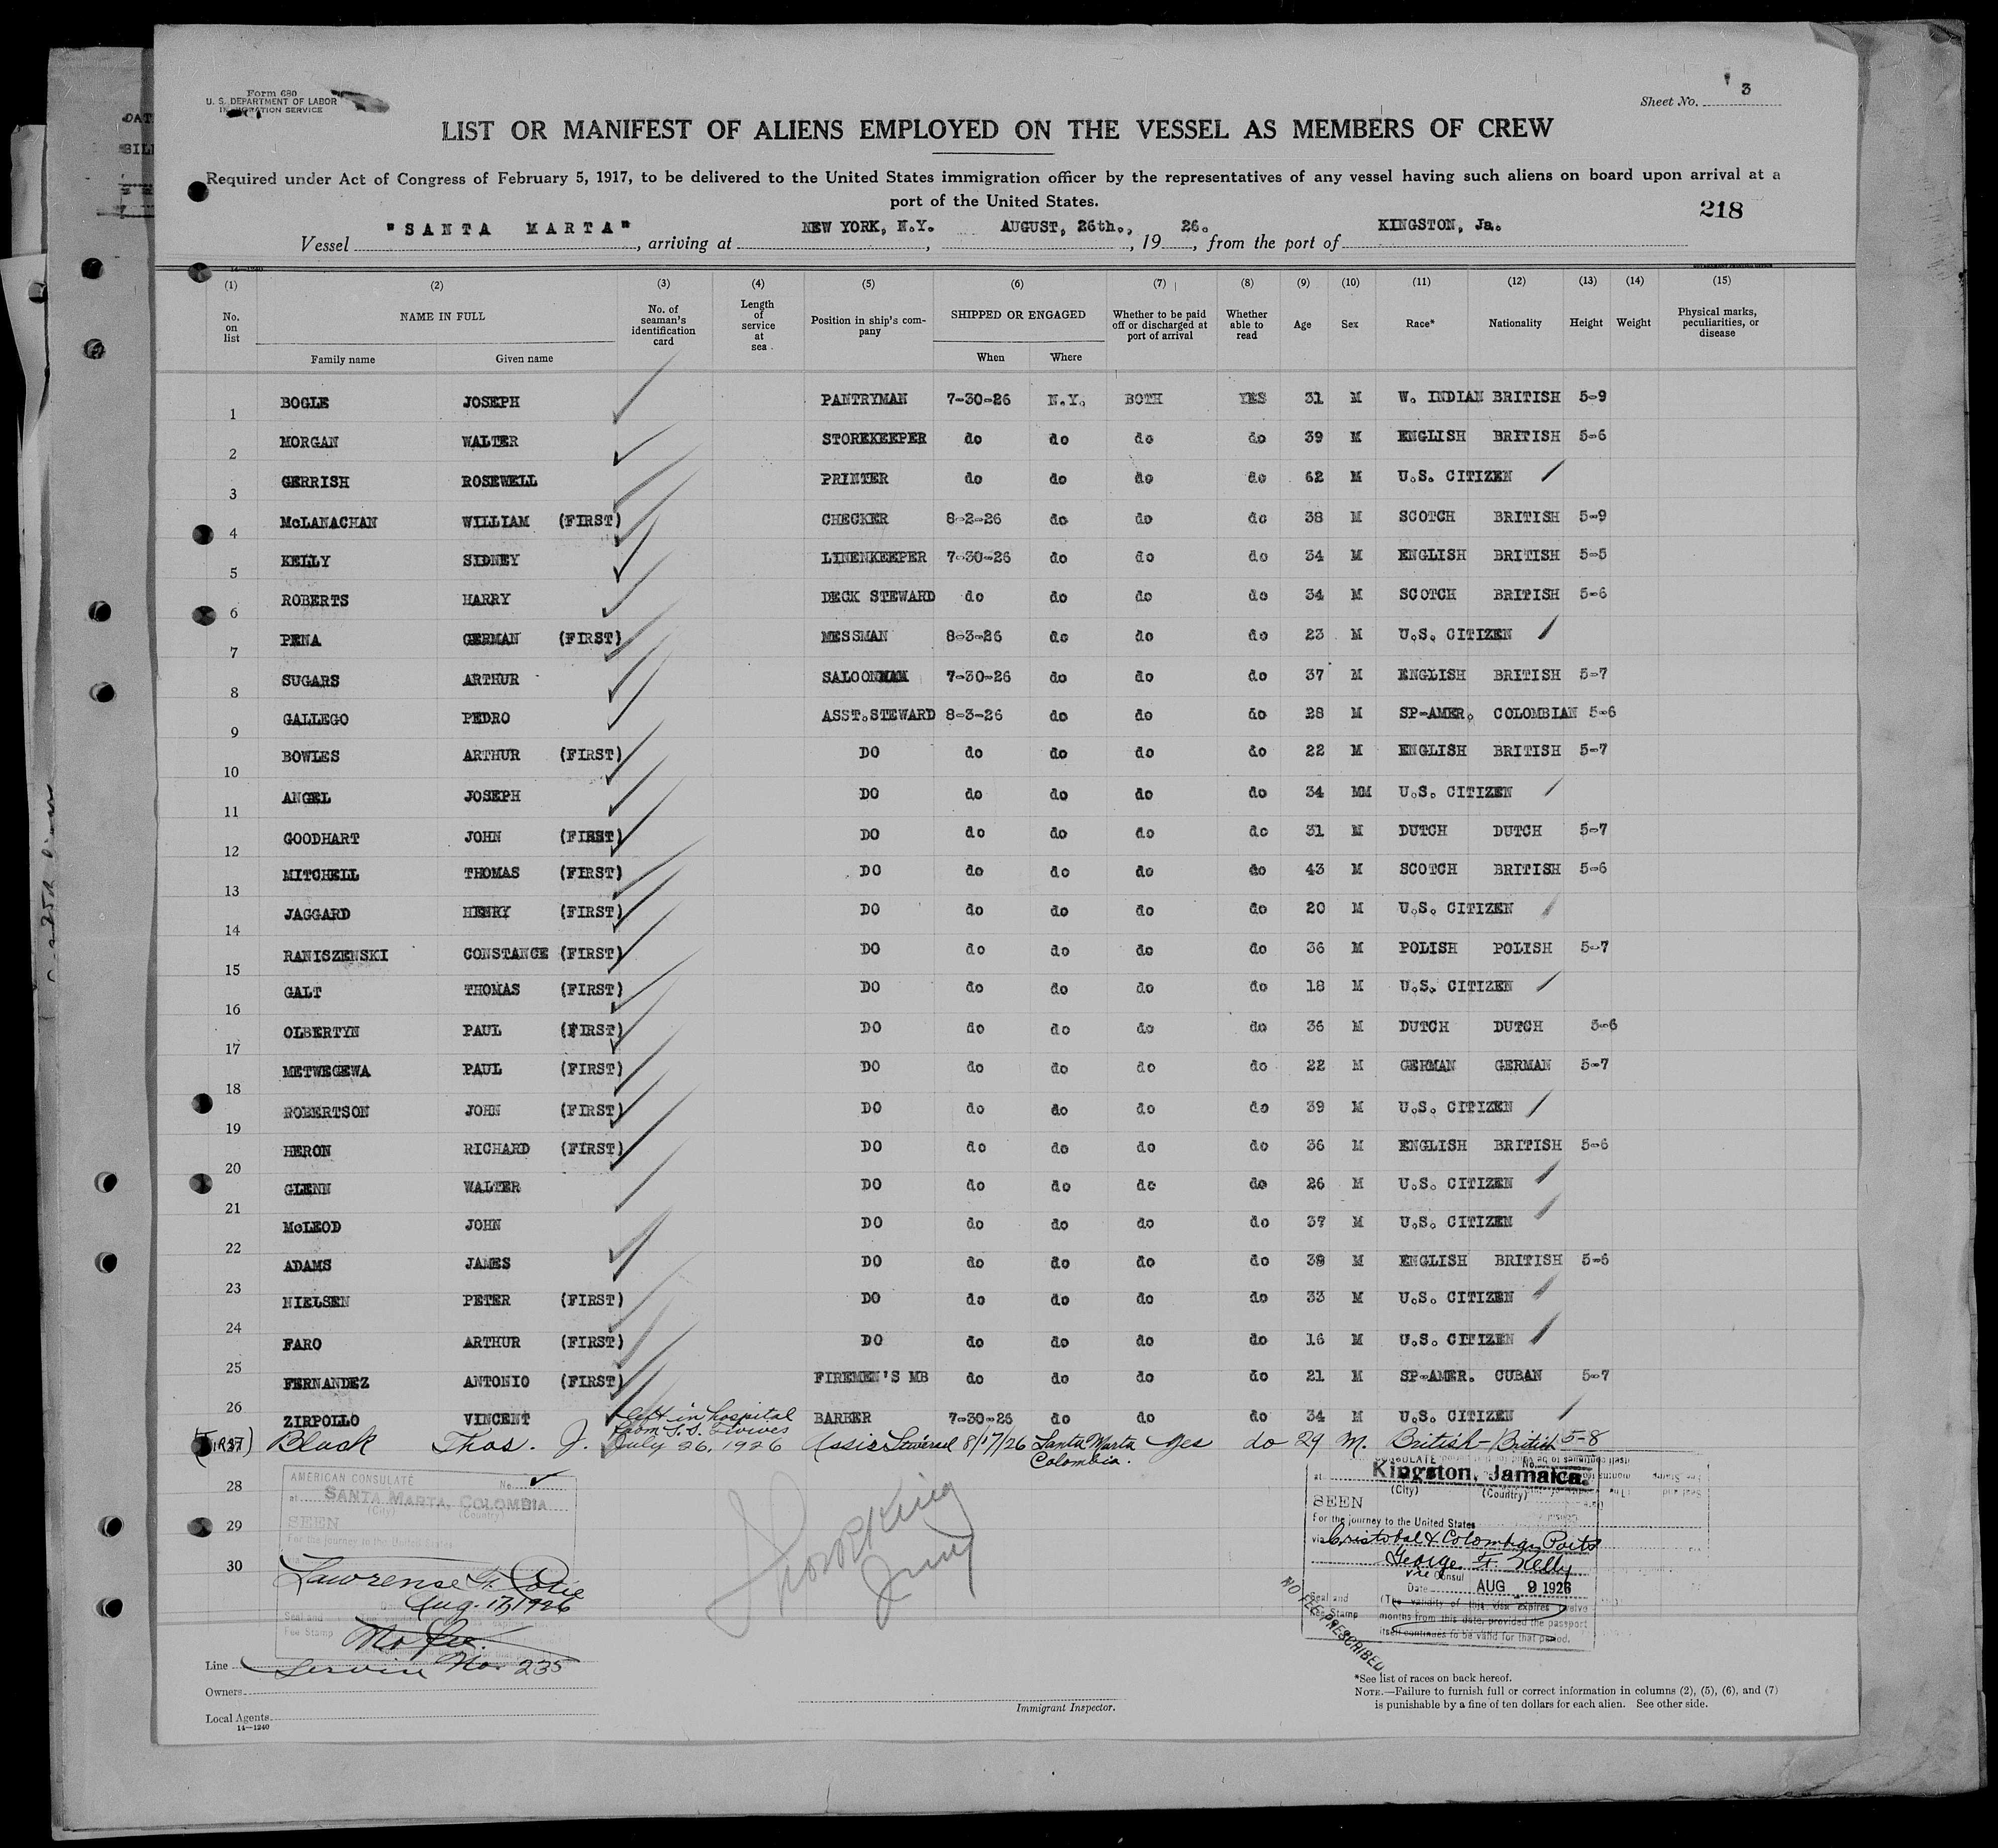 Form 680
U. S. DEPARTMENT OF LABOR
IMMIGRATION SERVICE
Sheet No. 3
LIST OR MANIFEST OF ALIENS EMPLOYED ON THE VESSEL AS MEMBERS OF CREW
Required under Act of Congress of February 5, 1917, to be delivered to the United States immigration officer by the representatives of any vessel having such aliens on board upon arrival at a
port of the United States.
218
Vessel "SANTA MARTA", arriving at NEW YORK, N.Y., AUGUST, 26th., 1926., from the port of KINGSTON, Ja.
(1) (2) (3) (4) (5) (6) (7) (8) (9) (10) (11) (12) (13) (14) (15)
No. on list NAME IN FULL No. of seaman's identification card Length of service at sea Position in ship's company SHIPPED OR ENGAGED Whether to be paid off or discharged at port of arrival Whether able to read Age Sex Race* Nationality Height Weight Physical marks, peculiarities, or disease
Family name Given name When Where
1 BOGLE JOSEPH PANTRYMAN 7-30-26 N.Y. BOTH YES 31 M W. INDIAN BRITISH 5-9
2 MORGAN WALTER STOREKEEPER do do do do 39 M ENGLISH BRITISH 5-6
3 GERRISH ROSEWELL PRINTER do do do do 62 M U.S. CITIZEN
4 McLANACHAN WILLIAM (FIRST) CHECKER 8-2-26 do do do 38 M SCOTCH BRITISH 5-9
5 KELLY SIDNEY LINENKEEPER 7-30-26 do do do 34 M ENGLISH BRITISH 5-5
6 ROBERTS HARRY DECK STEWARD do do do do 34 M SCOTCH BRITISH 5-6
7 PENA GERMAN (FIRST) MESSMAN 8-3-26 do do do 23 M U.S. CITIZEN
8 SUGARS ARTHUR SALOONMAN 7-30-26 do do do 37 M ENGLISH BRITISH 5-7
9 GALLEGO PEDRO ASST.STEWARD 8-3-26 do do do 28 M SP-AMER. COLOMBIAN 5-6
10 BOWLES ARTHUR (FIRST) DO do do do do 22 M ENGLISH BRITISH 5-7
11 ANGEL JOSEPH DO do do do do 34 MM U.S. CITIZEN
12 GOODHART JOHN (FIRST) DO do do do do 31 M DUTCH DUTCH 5-7
13 MITCHELL THOMAS (FIRST) DO do do do do 43 M SCOTCH BRITISH 5-6
14 JAGGARD HENRY (FIRST) DO do do do do 20 M U.S. CITIZEN
15 RANISZENSKI CONSTANCE (FIRST) DO do do do do 36 M POLISH POLISH 5-7
16 GALT THOMAS (FIRST) DO do do do do 18 M U.S. CITIZEN
17 OLBERTYN PAUL (FIRST) DO do do do do 36 M DUTCH DUTCH 5-6
18 METWEGEWA PAUL (FIRST) DO do do do do 22 M GERMAN GERMAN 5-7
19 ROBERTSON JOHN (FIRST) DO do do do do 39 M U.S. CITIZEN
20 HERON RICHARD (FIRST) DO do do do do 36 M ENGLISH BRITISH 5-6
21 GLENN WALTER DO do do do do 26 M U.S. CITIZEN
22 McLEOD JOHN DO do do do do 37 M U.S. CITIZEN
23 ADAMS JAMES DO do do do do 38 M ENGLISH BRITISH 5-6
24 NIELSEN PETER (FIRST) DO do do do do 33 M U.S. CITIZEN
25 FARO ARTHUR (FIRST) DO do do do do 16 M U.S. CITIZEN
26 FERNANDEZ ANTONIO (FIRST) FIREMEN'S MB do do do do 21 M SP-AMER. CUBAN 5-7
ZIRPOLLO VINCENT BARBER 7-30-26 do do do 34 M U.S. CITIZEN
left in hospital
from S.S.
July 26, 1926
(FIRST) 27 Black Thos. J. 8/17/26 Santa Marta Colombia. yes do 29 M. British - British 5-8
28
29
30
AMERICAN CONSULATE No.
at SANTA MARTA, COLOMBIA
(City) (Country)
SEEN
For the journey to the United States
Lawrence F.
Aug. 17, 1926
Seal and
Fee Stamp
No fee.
Service No. 235
Kingston, Jamaica.
(City) (Country)
SEEN
For the journey to the United States
via Cristobal & Colombian Ports
George F. Kelly
Vice Consul
Date AUG 9 1926
Seal and
Fee Stamp
(The validity of this visa expires twelve
months from this date, provided the passport
itself continues to be valid for that period.
NO FEE PRESCRIBED
Line
Owners
Local Agents
14—1240
Immigrant Inspector.
*See list of races on back hereof.
NOTE.—Failure to furnish full or correct information in columns (2), (5), (6), and (7)
is punishable by a fine of ten dollars for each alien. See other side.